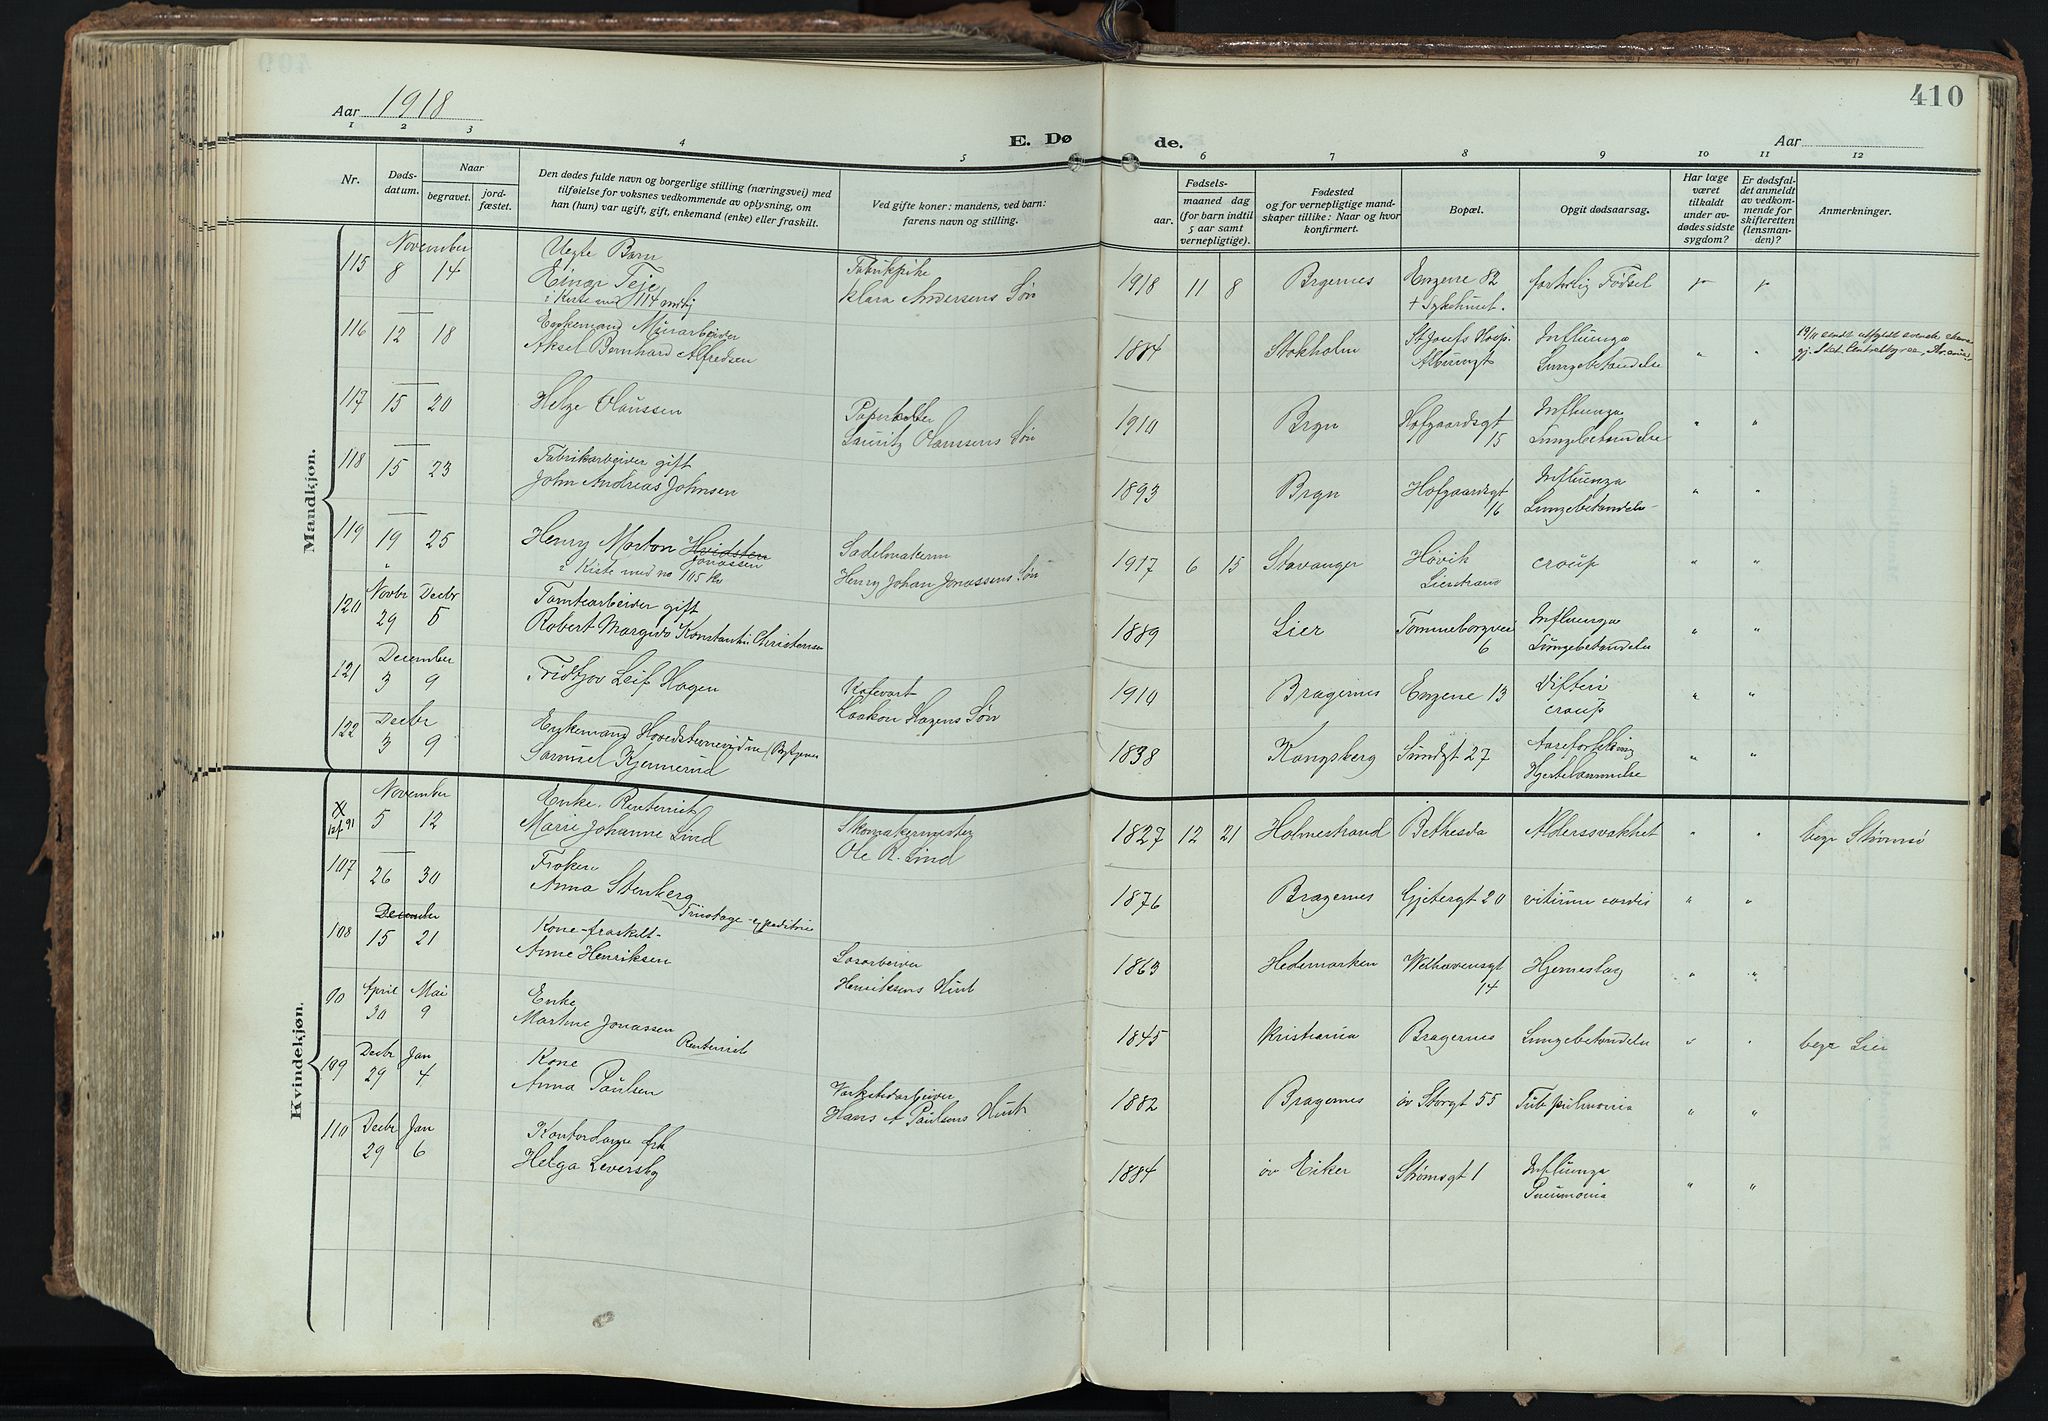 410
Aar 1918
E. Dø
de.
Aar
1 2 3 4 5 6 7 8 9 10 11 12
Nr.
Døds-
datum.
Naar
begravet.
jord-
fæstet.
Den dødes fulde navn og borgerlige stilling (næringsvei) med
tilføielse for voksnes vedkommende av oplysning, om
han (hun) var ugift, gift, enkemand (enke) eller fraskilt.
Ved gifte koner: mandens, ved barn:
farens navn og stilling.
Fødsels-
aar.
maaned dag
(for barn indtil
5 aar samt
vernepligtige).
Fødested
og for vernepligtige mand-
skaper tillike: Naar og hvor
konfirmert.
Bopæl.
Opgit dødsaarsag.
Har læge
været
tilkaldt
under av-
dødes sidste
sygdom?
Er dødsfal-
det anmeldt
av vedkom-
mende for
skifteretten
(lensman-
den)?
Anmerkninger.
Mandkjøn.
November
Uegte Barn
115 8 14 Einar Teje Fabrikpike 1918 11 8 Bragernes Engene 82 fortidlig Fødsel
i Kiste med 114 Klara Andersens Søn + Sykehuset.
116 12 18 Enkemand Murarbeider 1884 Stokholm St Josefs Hosp. Influenza " "
Aksel Bernhard Alfredsen Lungebetændelse
117 15 20 Helge Olaussen 1910 Brgn Hofgaardsgt Influenza " "
Lauritz Olaussens Søn 15 Lungebetændelse
118 15 23 Fabrikarbeider gift 1893 Brgn Hofgaardsgt Influenza " "
John Andreas Johnsen 16 Lungebetændelse
119 19 25 Henry Morton Hvidsten Sadelmakerm 1917 6 15 Stavanger Høvik croup
Jonassen
i Kiste med no 105 Henry Johan Jonassens Søn Lierstrand
Novbr Decbr
120 29 5 Tomtearbeider gift 1889 Lier Tommeborgvei Influenza " "
Robert Margido Konstantin Christensen 6 Lungebetændelse
December
121 3 9 Fridtjov Leif Hagen 1910 Bragernes Engene 13 Difteri " "
Haakon Hagens Søn croup
Decbr
122 3 9 Enkemand 1838 Kongsberg Sundgt 27 Aareforkalkning " "
Samuel Kjennerud Hjertelammelse
Kvindekjøn.
November
5 12 Enke. Rentenist Skomakermester 1827 12 21 Holmestrand Bethesda Alderssvakhet " " begr Strømsø
Marie Johanne Lind Ole R. Lind
107 26 30 Frøken 1876 Bragernes Gjetergt 20 vitium cordis " "
Anna Stenberg
December
108 15 21 Kone-fraskilt- 1863 Hedemarken Welhavensgt Hjerneslag " "
Anne Henriksen Henriksens Hust 14
April Mai
90 30 9 Enke 1845 Kristiania Bragernes Lungebetændelse " " begr Lier
Martine Jonassen
Rentenist
Decbr Jan
109 29 4 Kone Verkstedarbeider 1882 Bragernes øv Storgt 55 Tub pulmonia " "
Anna Paulsen Hans A Paulsens Hust
Decbr Jan
110 29 6 Kontordame frk 1884 øv Eiker Strømsgt 1 Influenza " "
Helga Leversby Pneumonia